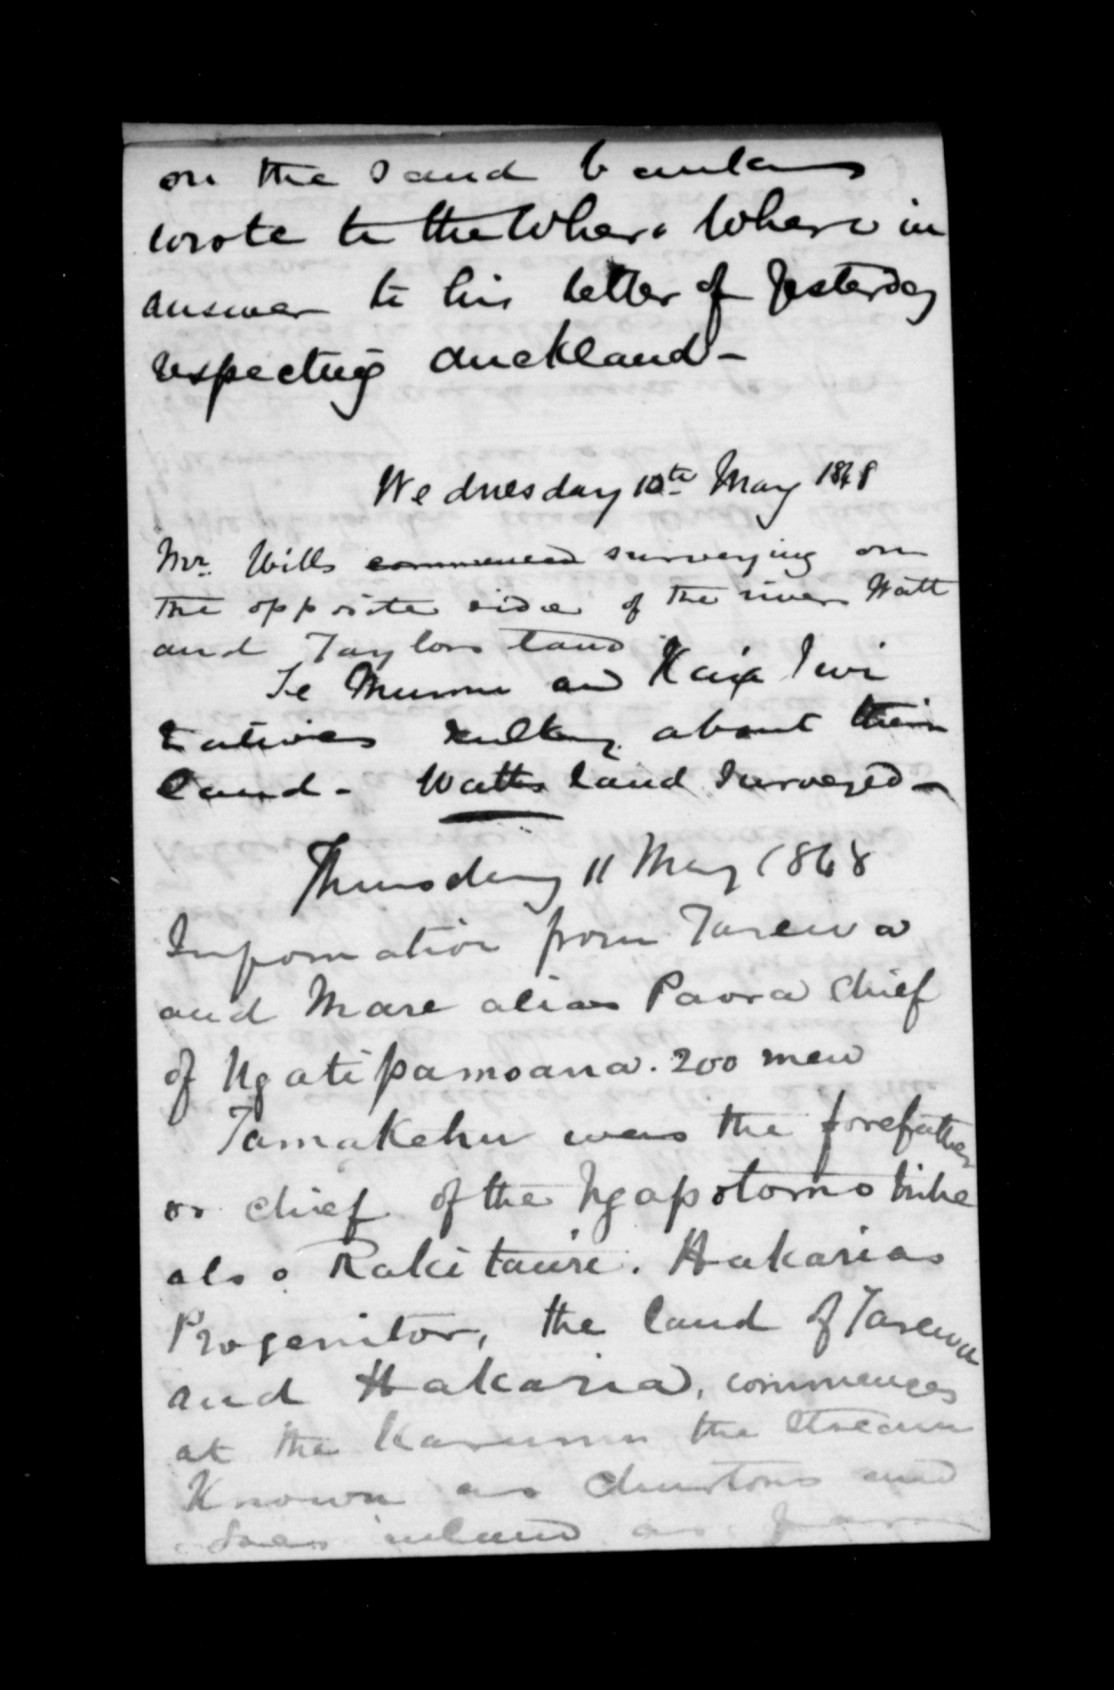 on the Sand banks
wrote to the Where Where in
answer to his letter of Yesterday
respecting Auckland -
Wednesday 10th May 1848
Mr. Wills commenced surveying on
the opposite side of the river Watt
and Taylors land
Te Mumu and Kai Iwi
natives talking about their
land - Watts land Surveyed -
Thursday 11 May 1848
Information from Tarewa
and Mare alias Paora Chief
of Ngatipamoana. 200 men
Tamakehu was the forefather
or chief of the Ngapotomo tribe
also Rakitauri. Hakarias
Progenitor, the land of Tarewa
and Hakaria, commences
at the the stream
Known as Churtons and
inland as